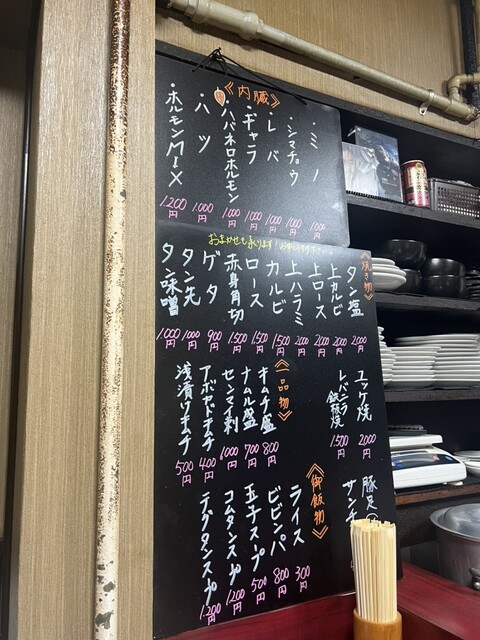 《内臓》
・ミノ 1000円
・シマチョウ 1000円
・レバ 1000円
・ギャラ 1000円
・ハバネロホルモン 1000円
・ハツ 1000円
・ホルモンMIX 1200円
おまかせも承ります!
《焼き物》
タン塩 2000円
上カルビ 2000円
上ロース 2000円
上ハラミ 2000円
カルビ 1500円
ロース 1500円
赤身角切 1500円
ゲタ 900円
タン先 1000円
タン味噌 1000円
ユッケ焼 2000円
レバニラ鉄板焼 1500円
豚足
サンチ
《一品物》
キムチ盛 800円
ナムル盛 700円
センマイ刺 1000円
アボカドキムチ 400円
浅漬けキムチ 500円
《御飯物》
ライス 300円
ビビンバ 800円
玉子スープ 500円
コムタンスープ 1200円
テグタンスープ 1200円